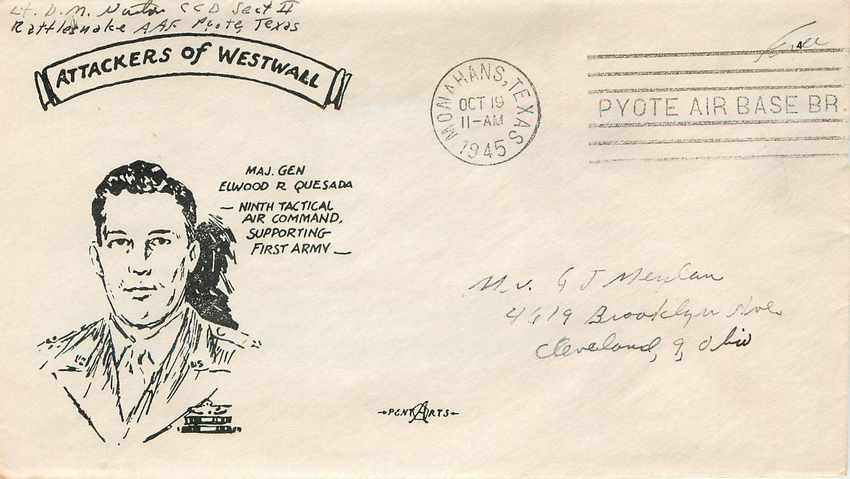 Lt. D. M. CCD Sect II
Rattlesnake AAF Pyote, Texas
ATTACKERS OF WESTWALL
MAJ. GEN
ELWOOD R QUESADA
— NINTH TACTICAL
AIR COMMAND,
SUPPORTING
FIRST ARMY —
US
MONAHANS, TEXAS
OCT 19
11-AM
1945
PYOTE AIR BASE BR.
Mr. G J
4619 Brooklyn Ave.
Cleveland, 9, Ohio
PENT ARTS